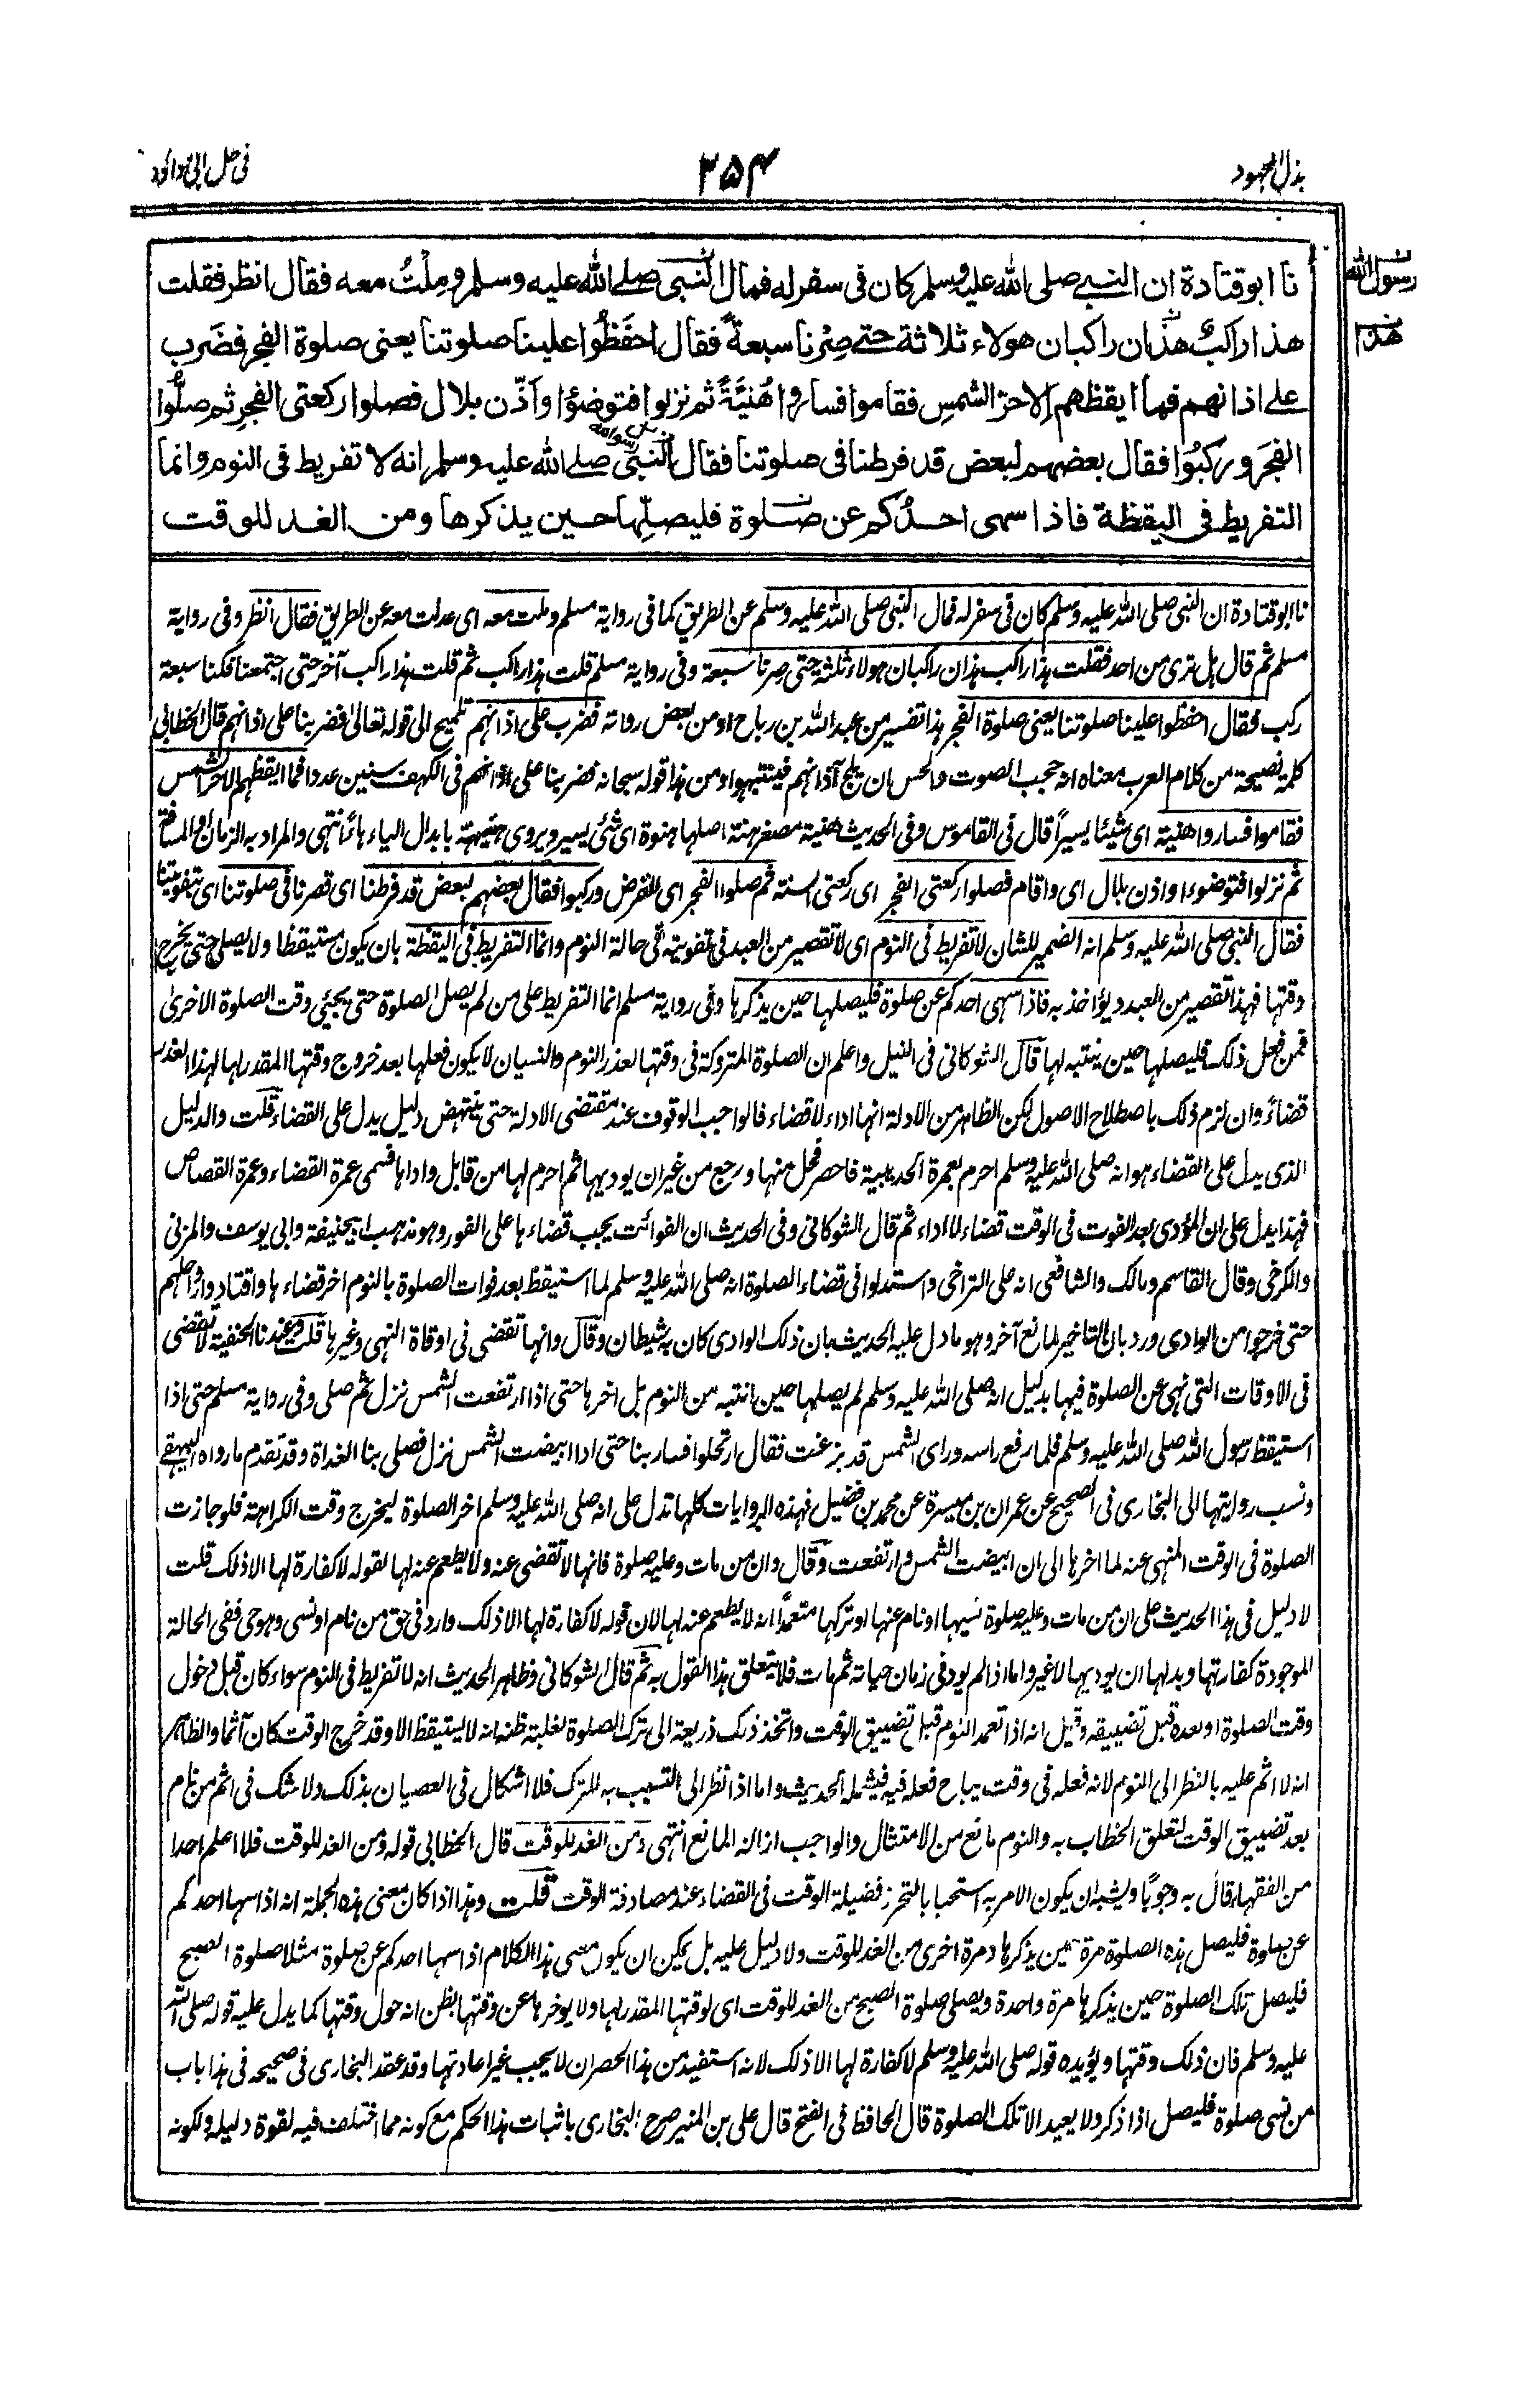 بذل المجهود
۲۵۴
فی حل ابی داؤد
رسول الله
هذا
نا ابو قتادة ان النبي صلى الله عليه وسلم كان في سفر له فمال النبي صلى الله عليه وسلم ومِلْتُ معه فقال انظر فقلت
هذا راكبٌ هذان راكبان هولاء ثلاثة حتى صِرْنا سبعةً فقال احفَظُوا علينا صلوتنا يعني صلوة الفجر فضَرب
على اذانهم فما ايقظهم الا حرّ الشمسِ فقاموا فساروا هُنَيَّةً ثم نزلوا فتوضؤا واَذّن بلال فصلوا ركعتي الفجرِ ثم صلُّوا
الفجرَ وركبُوا فقال بعضهم لبعض قد فرطنا في صلوتنا فقال النبي صلى الله عليه وسلم انه لا تفريط في النوم وانما
التفريط في اليقظة فاذا سهى احدُكم عن صلوة فليصلِّها حين يذكرها ومن الغد للوقت
نا ابو قتادة ان النبي صلى الله عليه وسلم كان في سفر له فمال النبي صلى الله عليه وسلم عن الطريق كما في رواية مسلم وملت معه اي عدلت معه عن الطريق فقال انظر وفي رواية
مسلم ثم قال هل ترى من احد فقلت هذا راكب هذان راكبان هولاء ثلثة حتى صرنا سبعة وفي رواية مسلم قلت هذا راكب ثم قلت هذا راكب آخر حتى اجتمعنا فكنا سبعة
ركب فقال احفظوا علينا صلوتنا يعني صلوة الفجر هذا تفسير من عبد الله بن رباح او من بعض رواته فضرب على اذانهم تلميح الى قوله تعالى فضربنا على اذانهم قال الخطابي
كلمة فصيحة من كلام العرب معناه انه حجب الصوت والحس ان يلج آذانهم فينتبهوا ومن هذا قوله سبحانه فضربنا على اذانهم في الكهف سنين عددا فما ايقظهم الا حر الشمس
فقاموا فساروا هنية اي شيئا يسيراً قال في القاموس وفي الحديث هنية مصغر هنة اصلها هنوة اي شئ يسير ويروى هنيهة بابدال الياء هاءً انتهى والمراد به الزمان والمسافة
ثم نزلوا فتوضوءا واذن بلال اي واقام فصلوا ركعتي الفجر اي ركعتي السنة ثم صلوا الفجر اي الفرض وركبوا فقال بعضهم لبعض قد فرطنا اي قصرنا في صلوتنا اي بتفويتنا
فقال النبي صلى الله عليه وسلم انه الضمير للشان لا تفريط في النوم اي لا تقصير من العبد في تفويته في حالة النوم وانما التفريط في اليقظة بان يكون مستيقظا ولا يصلي حتى يخرج
وقتها فهذا تقصير من العبد ويؤاخذ به فاذا سهى احدكم عن صلوة فليصلها حين يذكرها وفي رواية مسلم انما التفريط على من لم يصل الصلوة حتى يجيئ وقت الصلوة الاخرى
فمن فعل ذلك فليصلها حين ينتبه لها قال الشوكاني في النيل واعلم ان الصلوة المتروكة في وقتها لعذر النوم والنسيان لا يكون فعلها بعد خروج وقتها المقدر لها لهذا العذر
قضاءً وان لزم ذلك باصطلاح الاصول لكن الظاهر من الادلة انها اداء لا قضاء فالواجب الوقوف عند مقتضى الادلة حتى ينتهض دليل يدل على القضاء قلت والدليل
الذي يدل على القضاء هو انه صلى الله عليه وسلم احرم بعمرة الحديبية فاحصر فحل منها ورجع من غير ان يوديها ثم احرم لها من قابل واداها فسمى عمرة القضاء وعمرة القصاص
فهذا يدل على ان المؤدى بعد الفوت في الوقت قضاء لا اداء ثم قال الشوكاني وفي الحديث ان الفوائت يجب قضاءها على الفور وهو مذهب ابيحنيفة وابي يوسف والمزني
والكرخي وقال القاسم ومالك والشافعي انه على التراخي واستدلوا في قضاء الصلوة انه صلى الله عليه وسلم لما استيقظ بعد فوات الصلوة بالنوم اخر قضاءها واقتادوا رواحلهم
حتى خرجوا من الوادي ورد بان التاخير لمانع آخر وهو ما دل عليه الحديث بان ذلك الوادي كان به شيطان وقال وانها تقضى في اوقاة النهي وغيرها قلت وعندنا الحنفية لا تقضى
في الاوقات التي نهي عن الصلوة فيها بدليل انه صلى الله عليه وسلم لم يصلها حين انتبه من النوم بل اخرها حتى اذا ارتفعت الشمس نزل ثم صلى وفي رواية مسلم حتى اذا
استيقظ رسول الله صلى الله عليه وسلم فلما رفع راسه وراى الشمس قد بزغت فقال ارتحلوا فسار بنا حتى اذا ابيضت الشمس نزل فصلى بنا الغداة وقد تقدم ما رواه البيهقي
ونسب روايتها الى البخاري في الصحيح عن عمران بن ميسرة عن محمد بن فضيل فهذه الروايات كلها تدل على انه صلى الله عليه وسلم اخر الصلوة ليخرج وقت الكراهة فلو جازت
الصلوة في الوقت المنهي عنه لما اخرها الى ان ابيضت الشمس وارتفعت وقال وان من مات وعليه صلوة فانها لا تقضى عنه ولا يطعم عنه لها لقوله لا كفارة لها الا ذلك قلت
لا دليل في هذا الحديث على ان من مات وعليه صلوة نسيها او نام عنها او تركها متعمدًا انه لا يطعم عنه لها لان قوله لا كفارة لها الا ذلك وارد في حق من نام او نسى وهو حى ففي الحالة
الموجودة كفارتها وبدلها ان يوديها لا غير واما اذا لم يود في زمان حياته ثم مات فلا يتعلق هذا القول به ثم قال الشوكاني وظاهر الحديث انه لا تفريط في النوم سواء كان قبل دخول
وقت الصلوة او بعده قبل تضييقه وقيل انه اذا تعمد النوم قبل تضييق الوقت واتخذ ذلك ذريعة الى ترك الصلوة لغلبة ظنه انه لا يستيقظ الا وقد خرج الوقت كان آثما والظاهر
انه لا اثم عليه بالنظر الى النوم لانه فعله في وقت يباح فعله فيه فيشمله الحديث واما اذا نظر الى التسبب به للترك فلا اشكال في العصيان بذلك ولا شك في اثم من نام
بعد تضييق الوقت لتعلق الخطاب به والنوم مانع من الامتثال والواجب ازالة المانع انتهى ومن الغد للوقت قال الخطابي قوله ومن الغد للوقت فلا اعلم احدا
من الفقهاء قال به وجوبًا ويشبه ان يكون الامر به استحبابا لتحرز فضيلة الوقت في القضاء عند مصادفة الوقت قلت وهذا اذا كان معنى هذه الجملة انه اذا سها احدكم
عن صلوة فليصل هذه الصلوة مرة حين يذكرها ومرة اخرى من الغد للوقت ولا دليل عليه بل يمكن ان يكون معنى هذا الكلام اذا سها احدكم عن صلوة مثلا صلوة الصبح
فليصل تلك الصلوة حين يذكرها مرة واحدة ويصلي صلوة الصبح من الغد للوقت اي لوقتها المقدر لها ولا يوخرها عن وقتها بظن انه حول وقتها كما يدل عليه قوله صلى الله
عليه وسلم فان ذلك وقتها ويؤيده قوله صلى الله عليه وسلم لا كفارة لها الا ذلك لانه استفيد من هذا الحصر ان لا يجب غير اعادتها وقد عقد البخاري في صحيحه في هذا باب
من نسى صلوة فليصل اذا ذكر ولا يعيد الا تلك الصلوة قال الحافظ في الفتح قال علي بن المنير صرح البخاري باثبات هذا الحكم مع كونه مما اختلف فيه لقوة دليله ولكونه